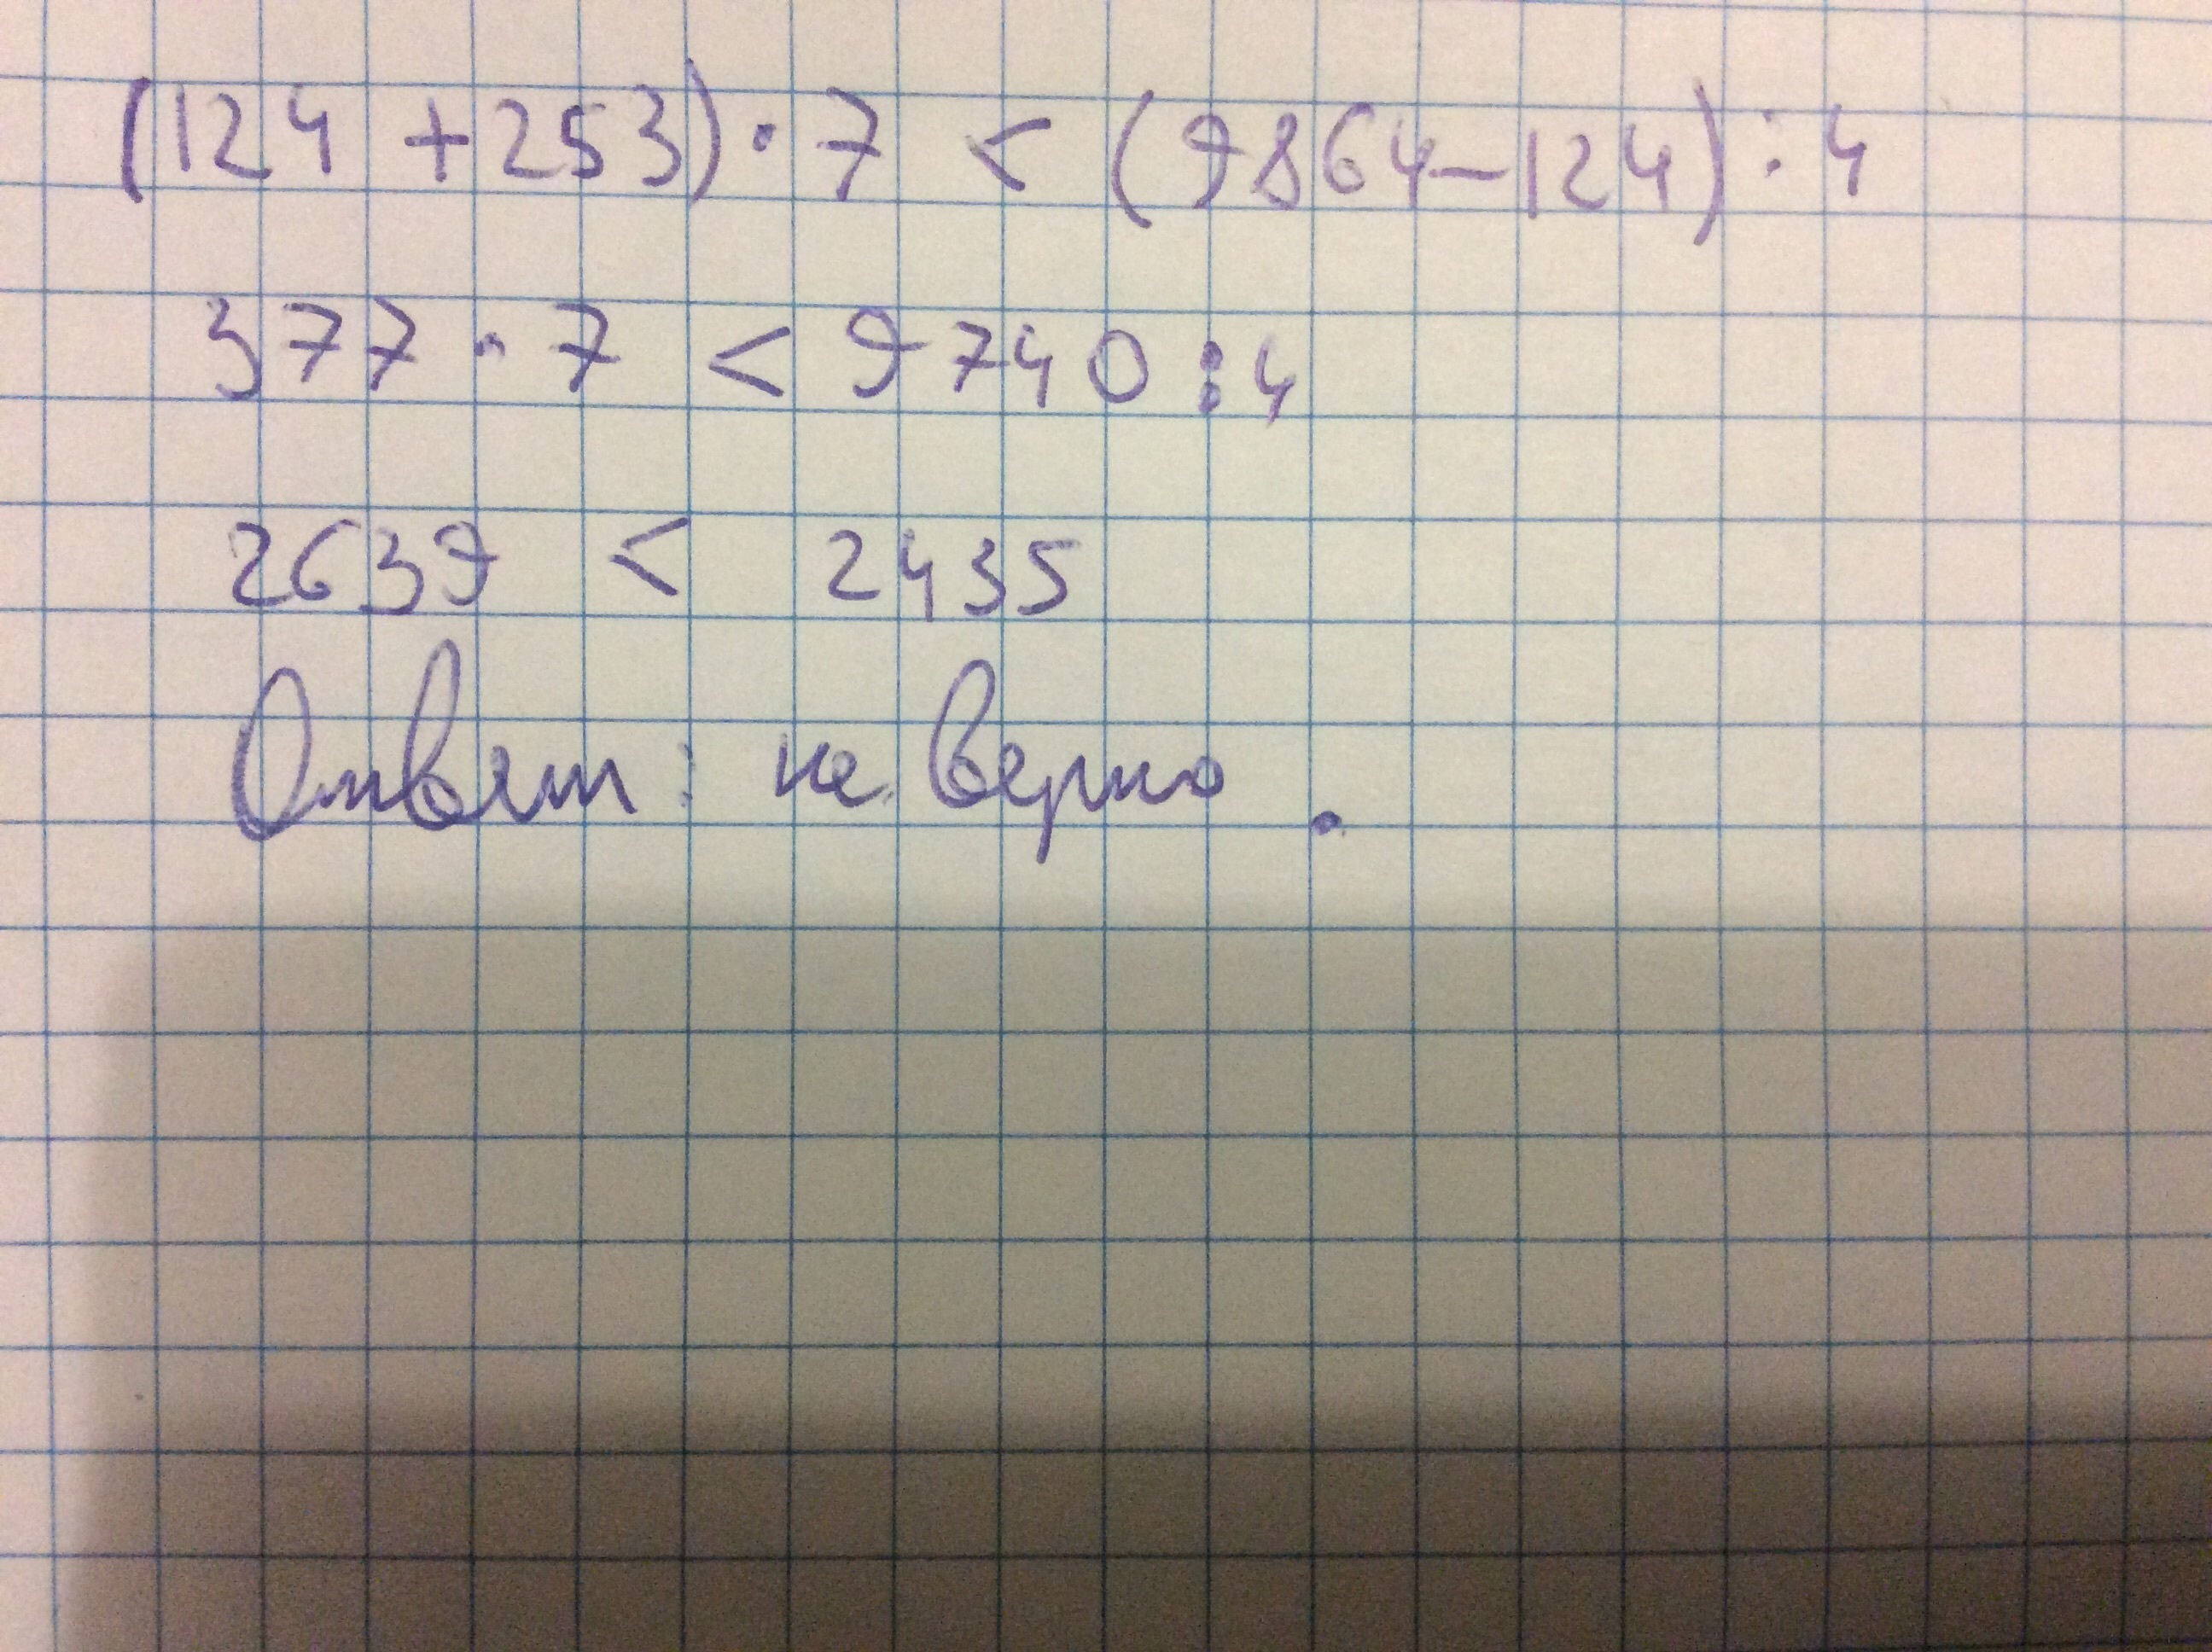 (124 + 253) · 7 < (9864 - 124) : 4
377 · 7 < 9740 : 4
2639 < 2435
Ответ: не верно.